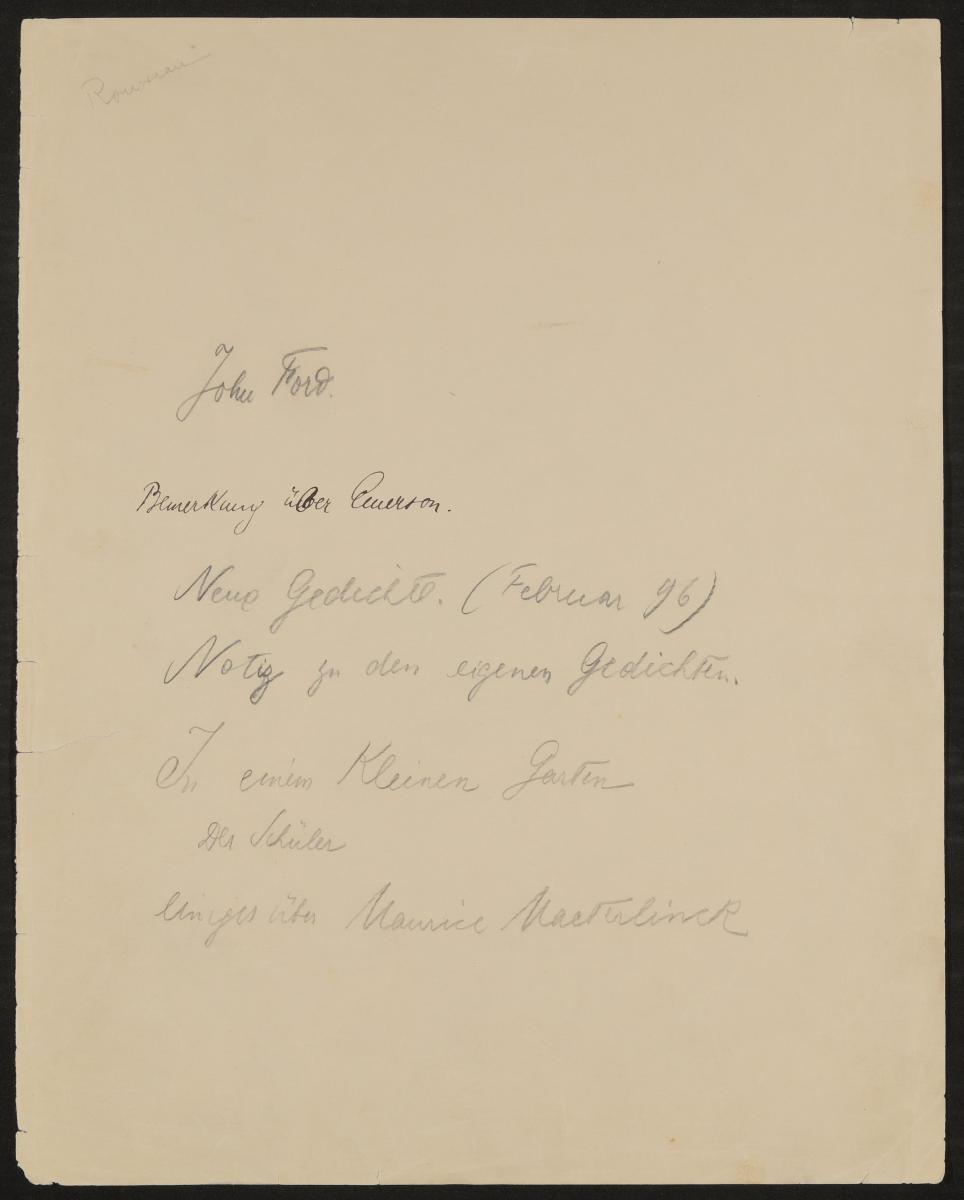 John Ford.
Bemerkung über Emerson.
Neue Gedichte. (Februar 96)
Notiz zu den eigenen Gedichten.
In einem Kleinen Garten
Der Schüler
Einiges über Maurice Maeterlinck